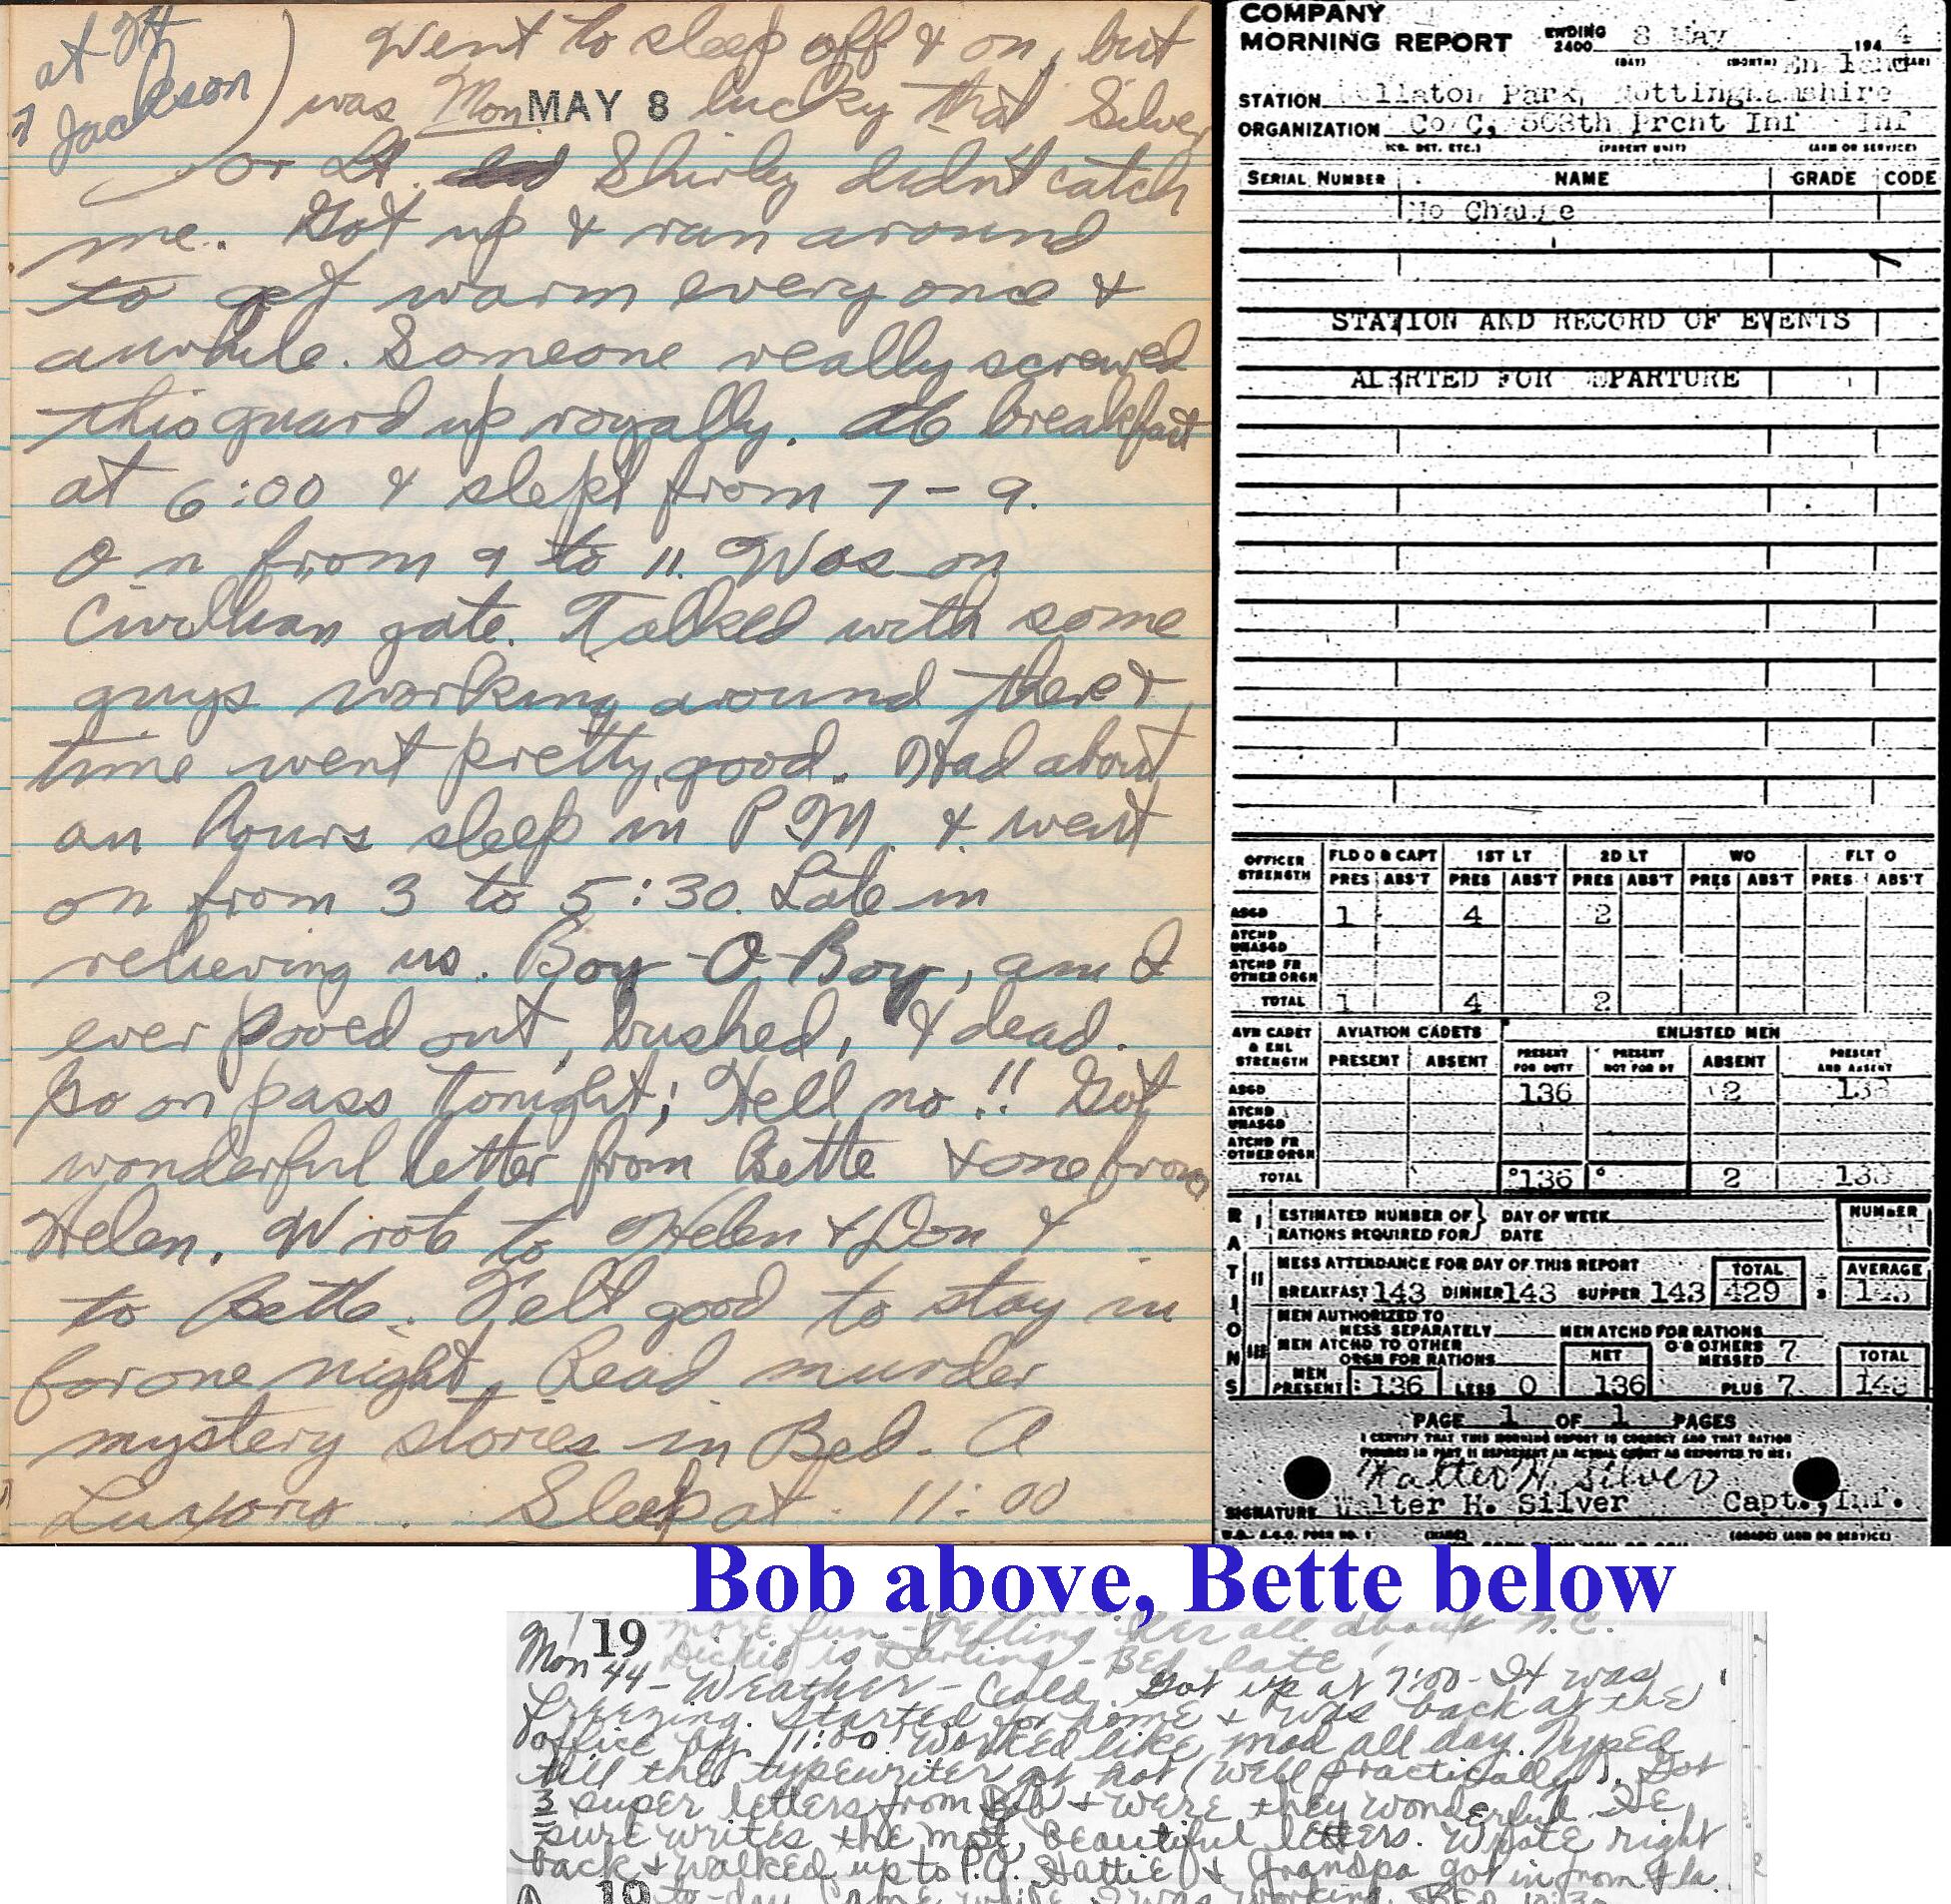 at Ft
Jackson
Went to sleep off & on, but
was Mon. MAY 8 lucky that Silver
or Lt. Shirley didn't catch
me. Got up & ran around
to get warm every once &
awhile. Someone really screwed
this guard up royally. Ate breakfast
at 6:00 & slept from 7-9.
On from 9 to 11. Was on
Civilian gate. Talked with some
guys working around there &
time went pretty good. Had about
an hours sleep in P.M. & went
on from 3 to 5:30. Late in
relieving us. Boy-O-Boy, am I
ever pooed out, bushed, & dead.
Go on pass tonight; Hell no!! Got
wonderful letter from Bette & one from
Helen. Wrote to Helen & Don &
to Bette. Felt good to stay in
for one night. Read murder
mystery stories in Bed. A
Luxory. Sleep at 11:00
COMPANY
MORNING REPORT ENDING 2400 8 May 194 4
(DAY) (MONTH) (YEAR)
England
STATION Wollaton Park, Nottinghamshire
ORGANIZATION Co C, 508th Prcht Inf Inf
(CO. DET. ETC.) (PARENT UNIT) (ARM OR SERVICE)
SERIAL NUMBER NAME GRADE CODE
No Change
STATION AND RECORD OF EVENTS
ALERTED FOR DEPARTURE
OFFICER STRENGTH FLD O & CAPT 1ST LT 2D LT WO FLT O
PRES ABS'T PRES ABS'T PRES ABS'T PRES ABS'T PRES ABS'T
ASGD 1 4 2
ATCHD UNASGD
ATCHD FR OTHER ORGN
TOTAL 1 4 2
AVN CADET & ENL STRENGTH AVIATION CADETS ENLISTED MEN
PRESENT ABSENT PRESENT FOR DUTY PRESENT NOT FOR DY ABSENT PRESENT AND ABSENT
ASGD 136 2 138
ATCHD UNASGD
ATCHD FR OTHER ORGN
TOTAL 136 2 138
RATIONS
I ESTIMATED NUMBER OF RATIONS REQUIRED FOR DAY OF WEEK DATE NUMBER
II MESS ATTENDANCE FOR DAY OF THIS REPORT TOTAL AVERAGE
BREAKFAST 143 DINNER 143 SUPPER 143 429 143
III MEN AUTHORIZED TO MESS SEPARATELY MEN ATCHD FOR RATIONS
MEN ATCHD TO OTHER ORGN FOR RATIONS NET O & OTHERS MESSED 7 TOTAL
MEN PRESENT 136 LESS 0 136 PLUS 7 143
PAGE 1 OF 1 PAGES
I CERTIFY THAT THIS MORNING REPORT IS CORRECT AND THAT RATION
FIGURES IN PART II REPRESENT AN ACTUAL COUNT AS REPORTED TO ME:
Walter H. Silver
SIGNATURE Walter H. Silver Capt., Inf.
Bob above, Bette below
more fun - Telling her all about N.C.
Dickie is Darling - Bed late
Mon 19 44 - Weather - Cold. Got up at 7:00 - It was
freezing. Started for home & was back at the
office by 11:00. Worked like mad all day. Typed
till the typewriter got hot (well practically). Got
3 super letters from Bob & were they wonderful. He
sure writes the most beautiful letters. Wrote right
back & walked up to P.O. Hattie & Grandpa got in from Fla.
19 to-day. Came while I was working. Bed